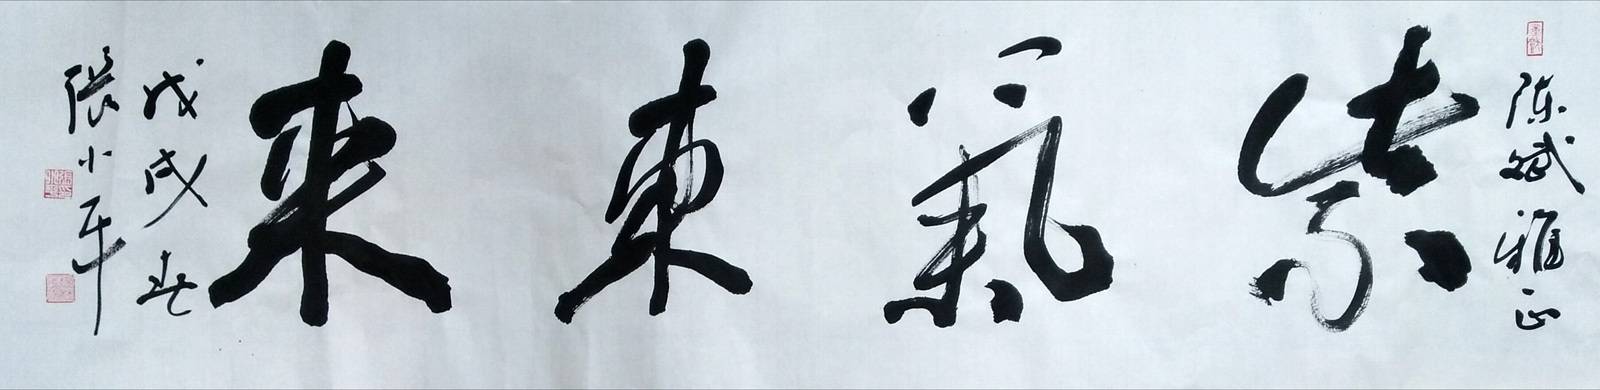 陈斌雅正
紫氣東來
戊戌春
張小平